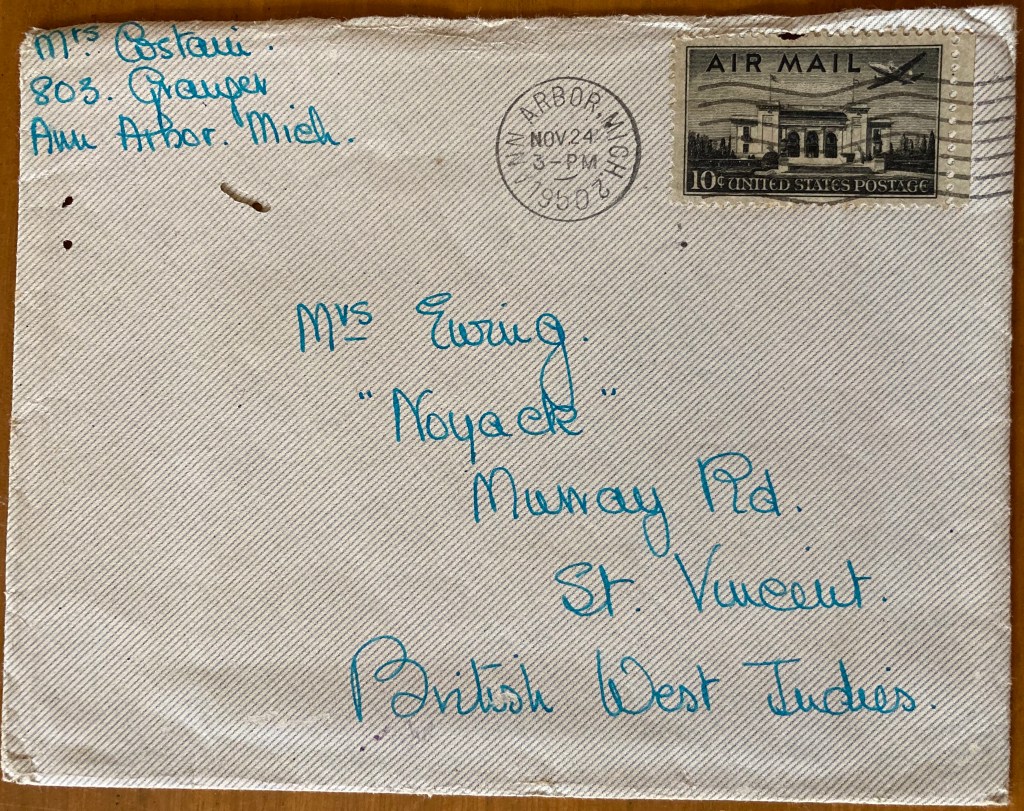 Mrs Costani.
803. Granger
Ann Arbor. Mich.
ANN ARBOR, MICH 2
NOV 24
3-PM
1950
AIR MAIL
10¢ UNITED STATES POSTAGE
Mrs Ewing.
"Noyack"
Murray Rd.
St. Vincent.
British West Indies.